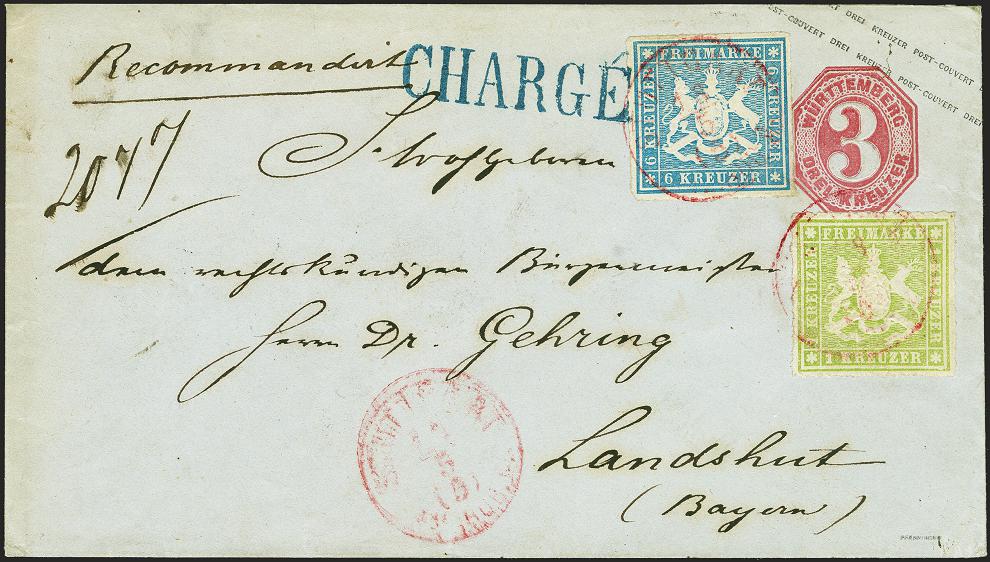 POST-COUVERT DREI KREUZER POST-COUVERT
POST-COUVERT DREI KREUZER POST-COUVERT DREI
Recommandirt
CHARGÉ
FREIMARKE
6 KREUZER
6 KREUZER
WÜRTTEMBERG
3
DREI KREUZER
2047
S. Wohlgeboren
dem rechtskundigen Bürgermeister
Herrn Dr. Gehring
FREIMARKE
KREUZER
1 KREUZER
STUTTGART
Landshut
(Bayern)
PFENNINGER